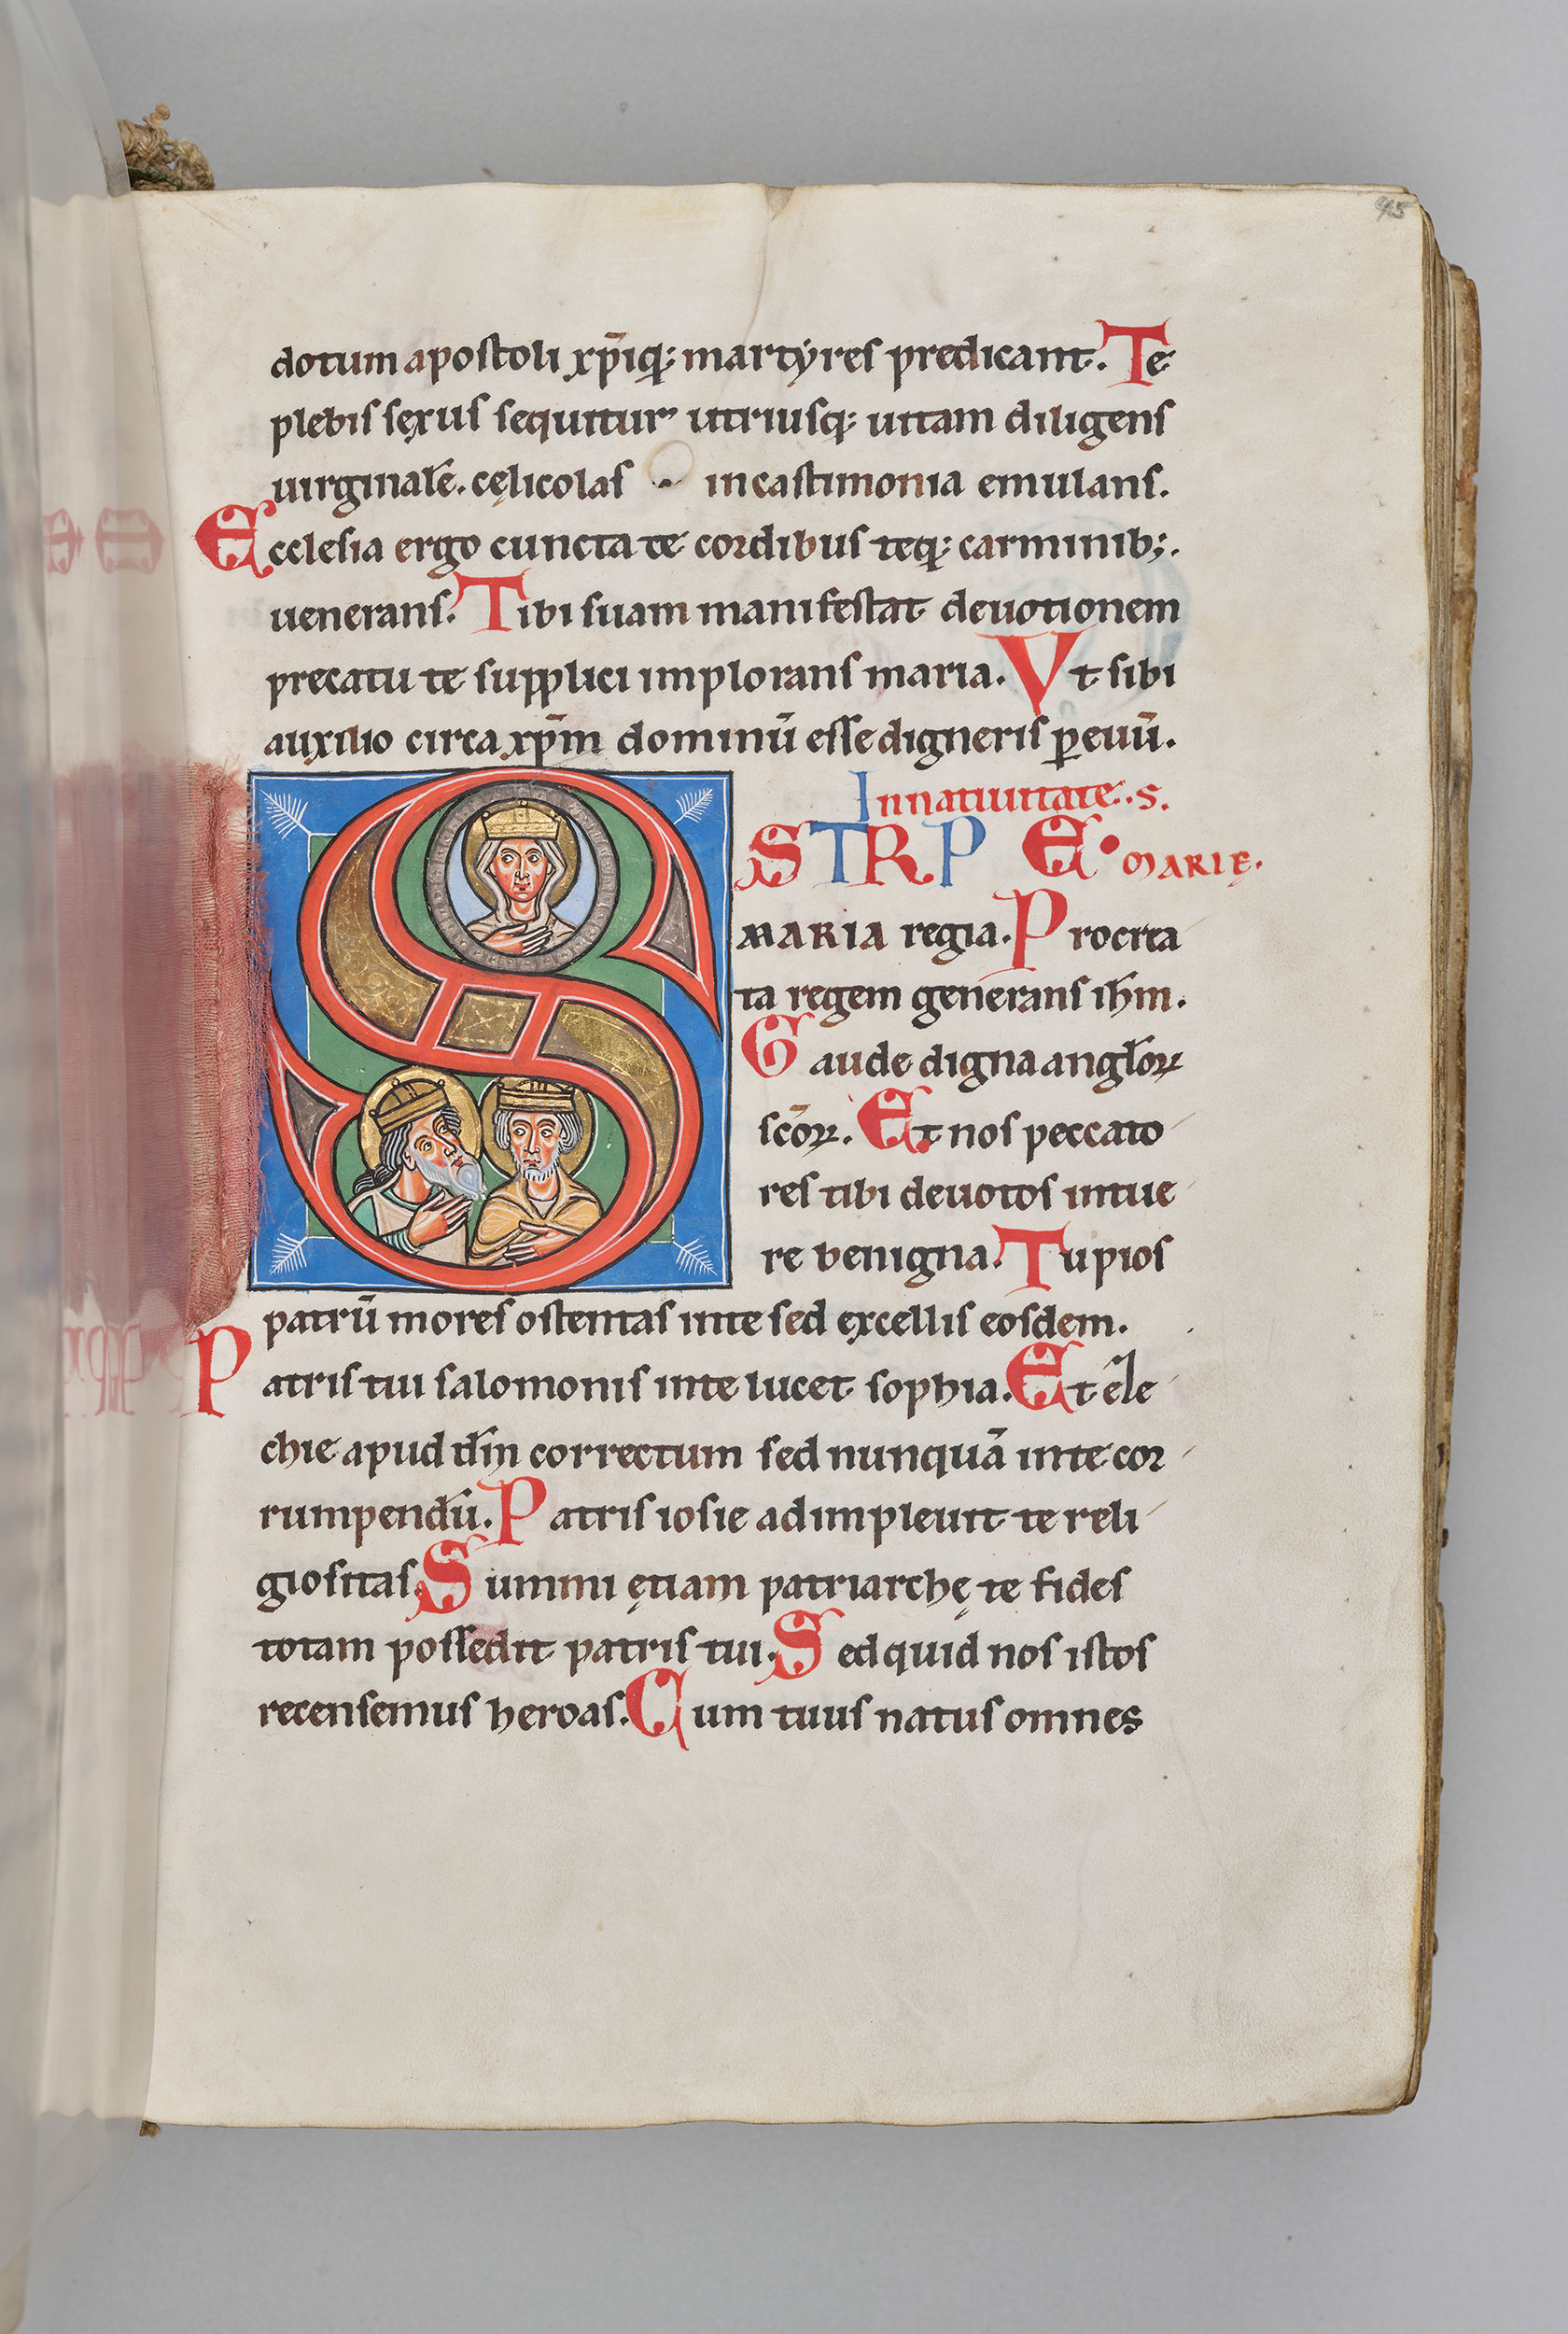 95
dotum apostoli xp̄iq; martyres predicant. Te
plebis sęxus sequitur utriusq; uitam diligens
uirginalē. cęlicolas in castimonia emulans.
Ecclesia ergo cuncta te cordibus teq; carminib;.
uenerans. Tibi suam manifestat deuotionem
precatu te supplici implorans maria. Vt sibi
auxilio circa xp̄m dominū esse digneris p̲ euū.
In natiuitate. s.
STRPE. MARIE.
MARIA regia. Procrea
ta regem generans ih̄m.
Gaude digna angl̄oꝝ
sc̄oꝝ. Et nos peccato
res tibi deuotos intue
re benigna. Tu pios
patrū mores ostentas in te sed excellis eosdem.
Patris tui salomonis in te lucet sophia. Et eze
chie apud dm̄ correctum sed nunquā in te cor
rumpendū. Patris iosie adimpleuit te reli
giositas. Summi ętiam patriarchę te fides
totam possedit patris tui. Sed quid nos istos
recensemus heroas. Cum tuus natus omnes